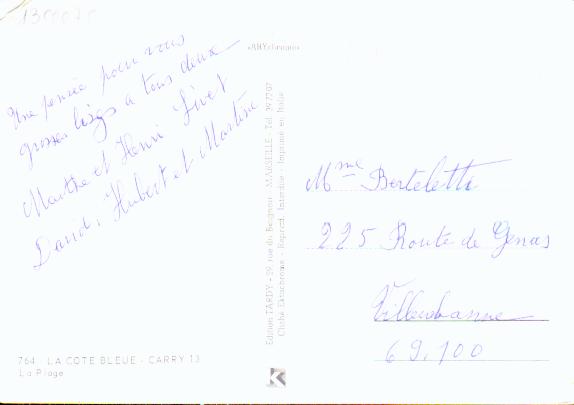 Une pensée pour vous
grosses bises a tous deux
Marthe et Henri Livet
David, Hubert et Martine
764 LA COTE BLEUE - CARRY 13
La Plage
Edition TARDY - 29, rue du Berceau - MARSEILLE - Tél. 397797
Cliché Ektachrome - Reprod. Interdite - Imprimé en Italie
Mme Berteletti
225 Route de Genas
Villeurbanne
69.100